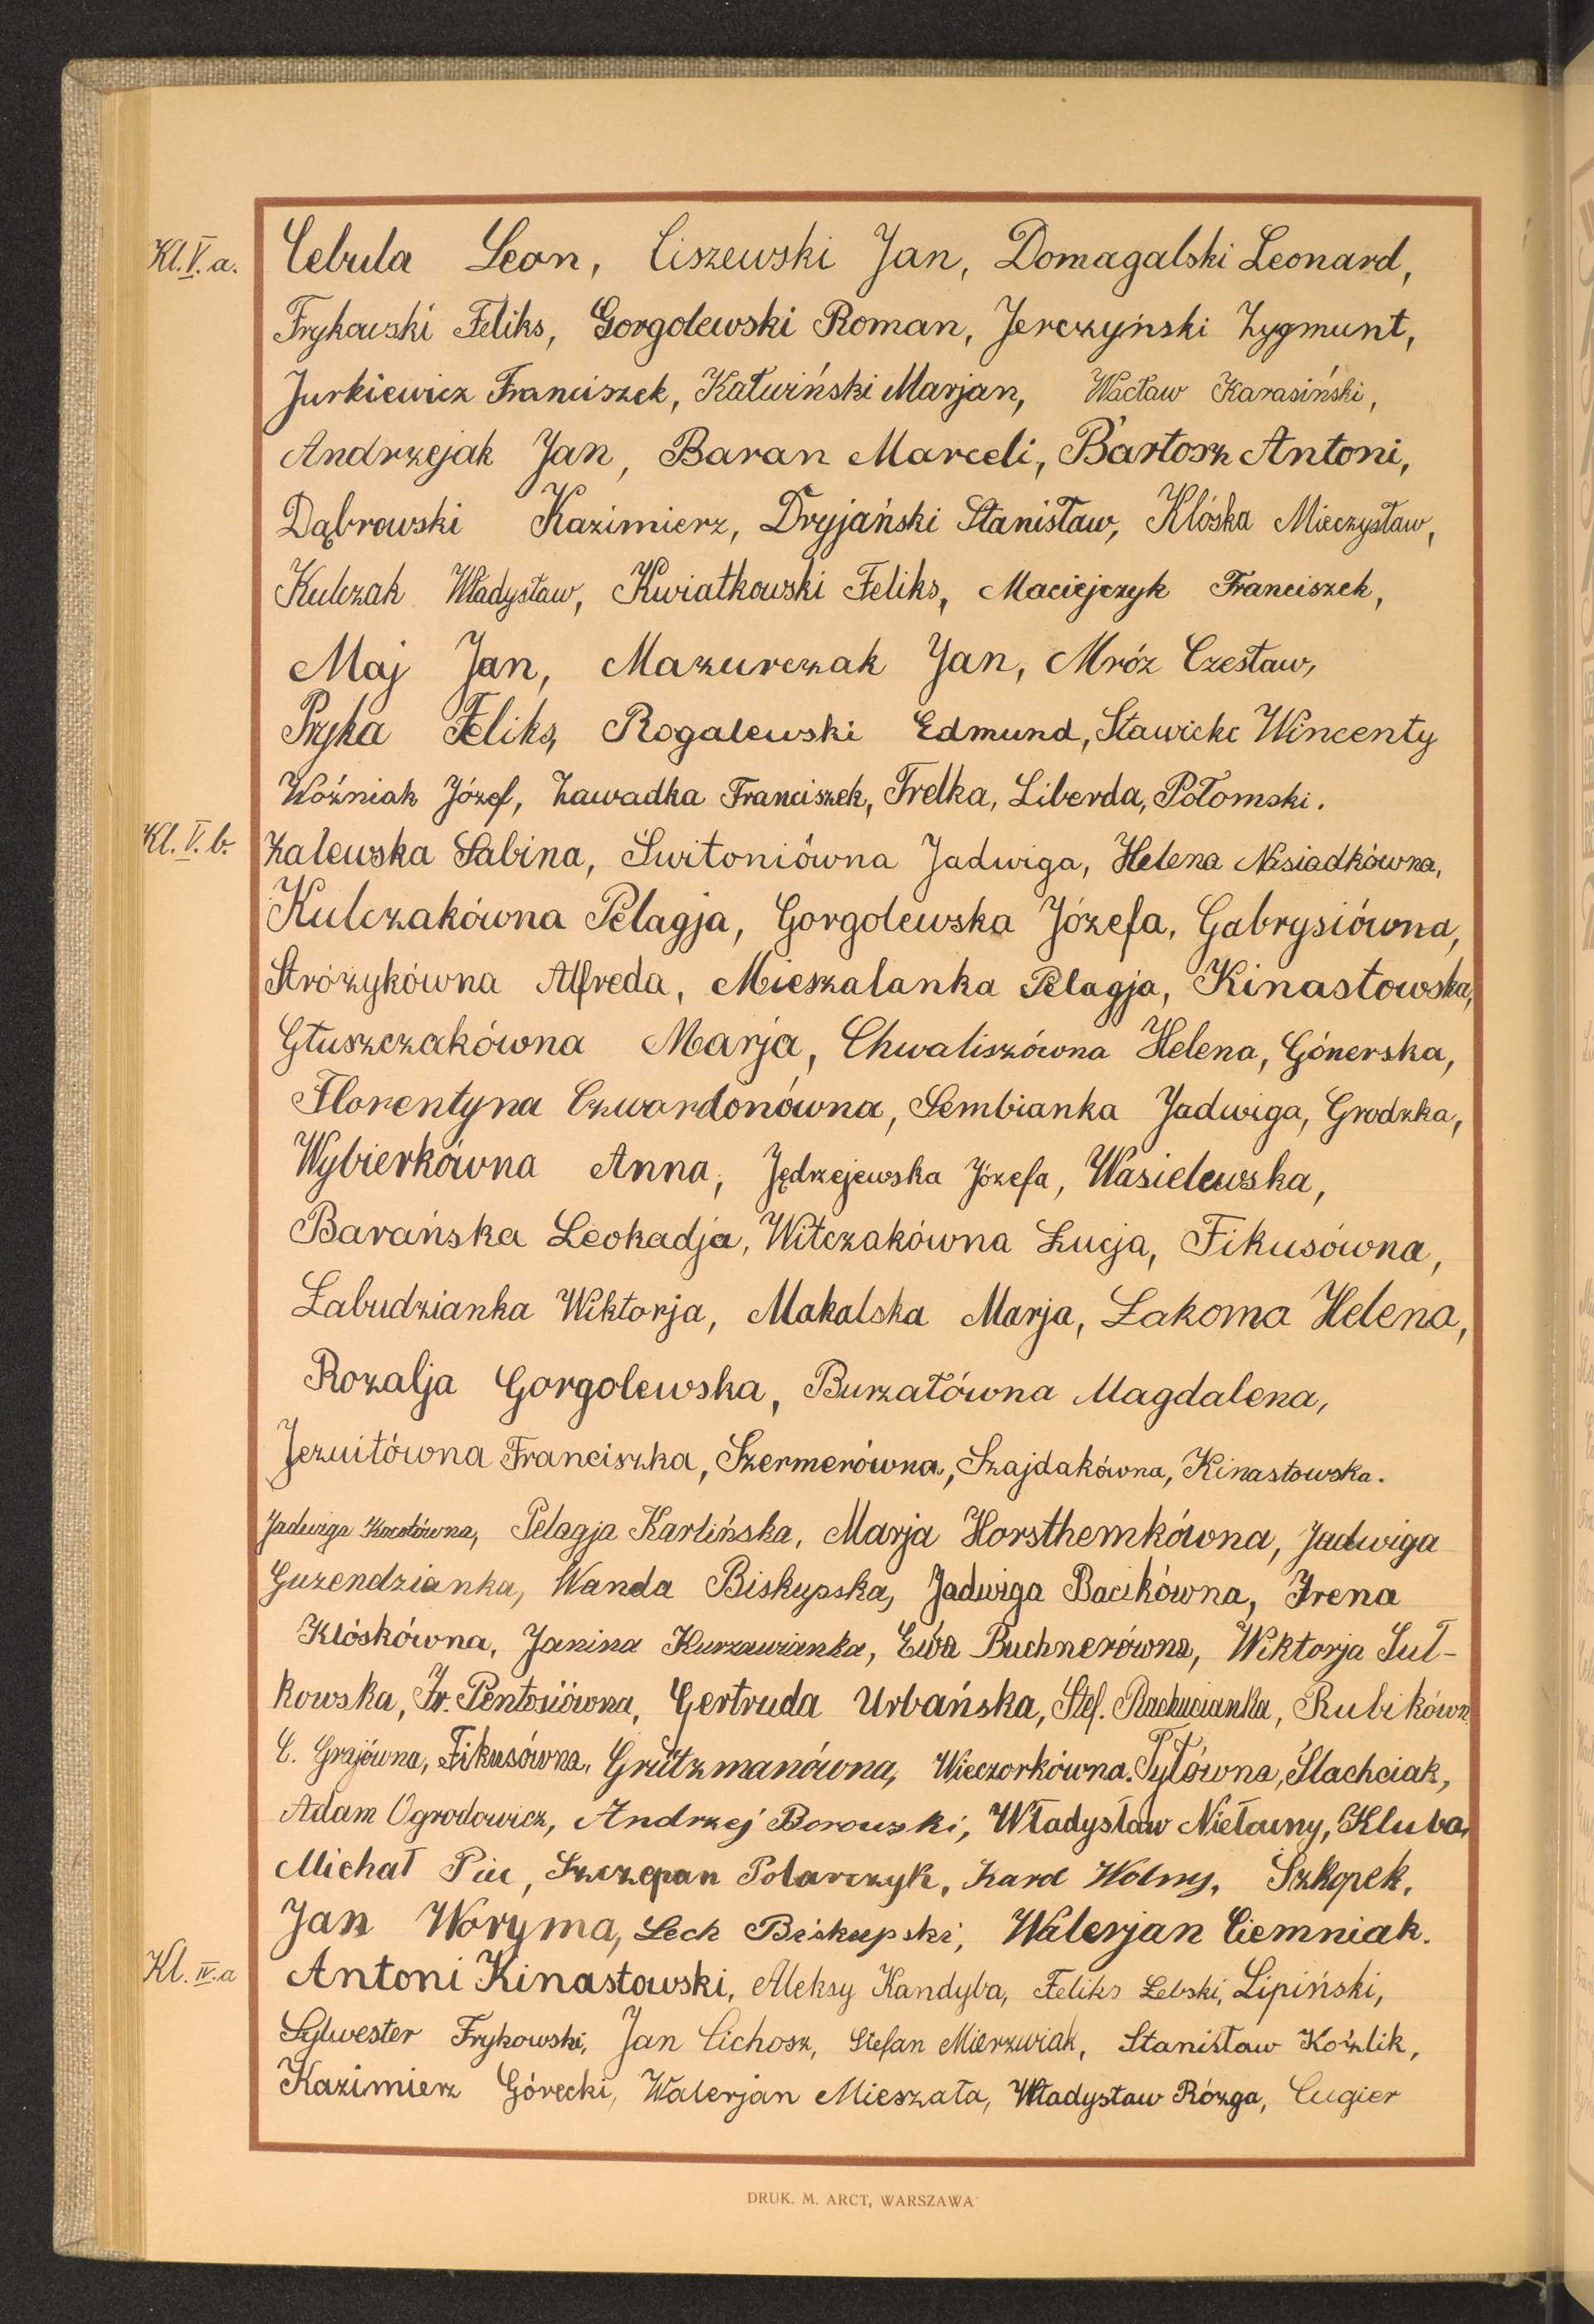 Kl. V. a. Cebula Leon, Ciszewski Jan, Domagalski Leonard,
Frykowski Feliks, Gorgolewski Roman, Jerczyński Zygmunt,
Jurkiewicz Franciszek, Kałwiński Marjan, Wacław Karasiński,
Andrzejak Jan, Baran Marceli, Bartosz Antoni,
Dąbrowski Kazimierz, Dryjański Stanisław, Klóska Mieczysław,
Kulczak Władysław, Kwiatkowski Feliks, Maciejczyk Franciszek,
Maj Jan, Mazurczak Jan, Mróz Czesław,
Pryka Feliks, Rogalewski Edmund, Stawicki Wincenty
Woźniak Józef, Zawadka Franciszek, Trelka, Liberda, Połomski.
Kl. V. b. Zalewska Sabina, Świtoniówna Jadwiga, Helena Nasiadkówna,
Kulczakówna Pelagja, Gorgolewska Józefa, Gabrysiówna,
Stróżykówna Alfreda, Mieszalanka Pelagja, Kinastowska,
Głuszczakówna Marja, Chwaliszówna Helena, Gónerska,
Florentyna Czwordonówna, Sembianka Jadwiga, Grodzka,
Wybierkówna Anna, Jędrzejewska Józefa, Wasielewska,
Barańska Leokadja, Witczakówna Łucja, Fikusówna,
Łabudzianka Wiktorja, Makalska Marja, Łakoma Helena,
Rozalja Gorgolewska, Burzałówna Magdalena,
Jezuitówna Franciszka, Szermerówna, Szajdakówna, Kinastowska.
Jadwiga Kocotówna, Pelagja Karlińska, Marja Horsthemkówna, Jadwiga
Guzendzianka, Wanda Biskupska, Jadwiga Bacikówna, Irena
Klóskówna, Janina Kurzawianka, Ewa Buchnerówna, Wiktorja Suł-
kowska, Ir. Pentosiówna, Gertruda Urbańska, Stef. Rachucianka, Rubikówn.
C. Grzjówna, Fikusówna, Grützmanówna, Wieczorkówna. Tylówna, Ślachciak,
Adam Ogrodowicz, Andrzej Borowski, Władysław Niełacny, Kluba,
Michał Piec, Szczepan Polarczyk, Karol Wolny, Szkopek,
Jan Woryma, Lech Biskupski, Walerjan Ciemniak.
Kl. IV. a Antoni Kinastowski, Aleksy Kandyba, Feliks Łebski, Lipiński,
Sylwester Frykowski, Jan Cichosz, Stefan Mierzwiak, Stanisław Koźlik,
Kazimierz Górecki, Walerjan Mieszała, Władysław Rózga, Cugier
DRUK. M. ARCT, WARSZAWA